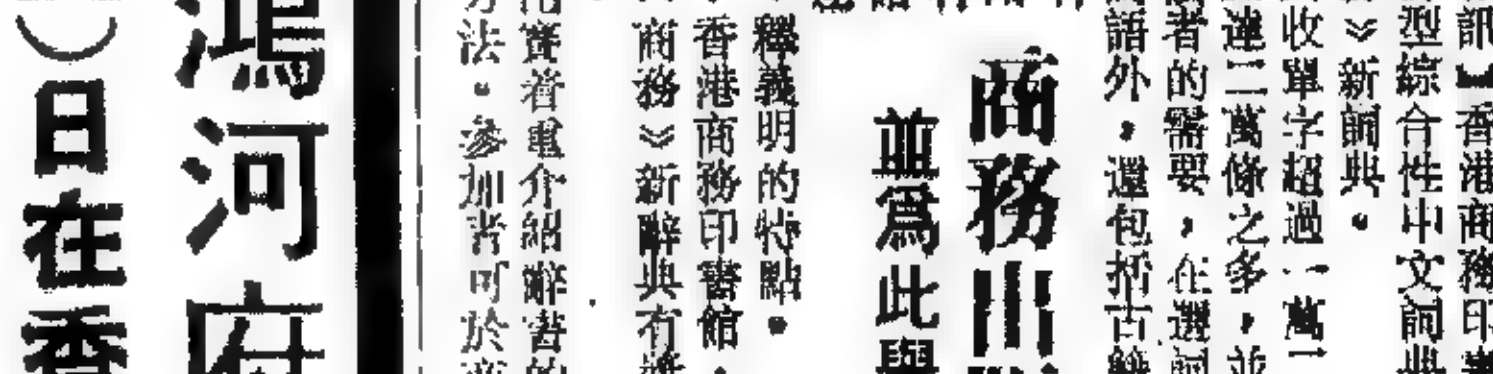 訊】香港商務印書
型綜合性中文詞典
》新詞典。
收單字超過一萬一
達二萬條之多，並
者的需要，在選詞
語外，還包括古
商務出
並為此舉
釋義明的特點。
香港商務印書館，
商務》新辭典有獎
港實着重介紹辭書的
方法。參加者可於商
鴻河府
）日在香